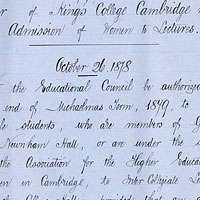 er of King's College Cambridge
Admission of Women to Lectures.
October 26. 1878
the Educational Council be authorized
end of Michaelmas Term, 1879, to
le students, who are members of G
Newnham Hall, or are under the s
the Association for the Higher Educa
en in Cambridge, to Inter-Collegiate Le